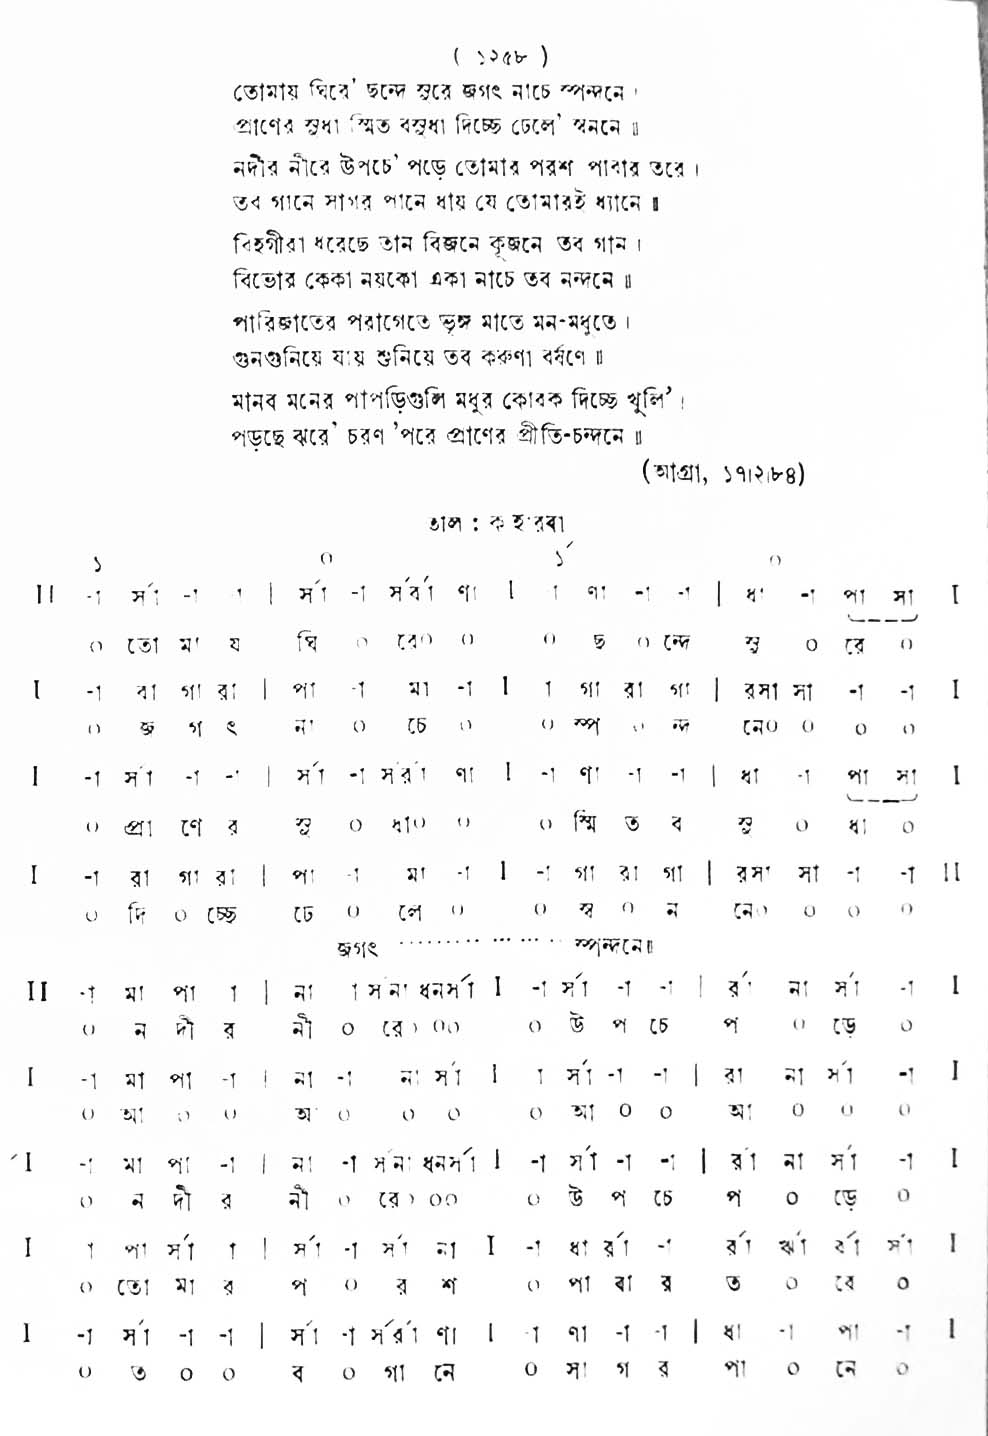 ( ১২৫৮ )
তোমায় ঘিরে' ছন্দে সুরে জগৎ নাচে স্পন্দনে ।
প্রাণের সুধা স্মিত বসুধা দিচ্ছে ঢেলে' স্বননে ॥
নদীর নীরে উপচে' পড়ে তোমার পরশ পাবার তরে ।
তব গানে সাগর পানে ধায় যে তোমারই ধ্যানে ॥
বিহগীরা ধরেছে তান বিজনে কূজনে তব গান ।
বিভোর কেকা নয়কো একা নাচে তব নন্দনে ॥
পারিজাতের পরাগেতে ভৃঙ্গ মাতে মন-মধুতে ।
গুনগুনিয়ে যায় শুনিয়ে তব করুণা বর্ষণে ॥
মানব মনের পাপড়িগুলি মধুর কোরক দিচ্ছে খুলি' ।
পড়ছে ঝরে' চরণ 'পরে প্রাণের প্রীতি-চন্দনে ॥
(আগ্রা, ১৭।২।৮৪)
তাল : কাহারবা
১ ০ ১́ ০
II -া র্সা -া -া | র্সা -া র্সর্রা ণা I -া ণা -া -া | ধা -া পা সা I
০ তো মা য় ঘি ০ রে০ ০ ০ ছ ০ ন্দে সু ০ রে ০
I -া রা গা রা | পা -া মা -া I -া গা রা গা | রসা সা -া -া I
০ জ গ ৎ না ০ চে ০ ০ স্প ০ ন্দ নে০ ০ ০ ০
I -া র্সা -া -া | র্সা -া র্সর্রা ণা I -া ণা -া -া | ধা -া পা সা I
০ প্রা ণে র সু ০ ধা০ ০ ০ স্মি ত ব সু ০ ধা ০
I -া রা গা রা | পা -া মা -া I -া গা রা গা | রসা সা -া -া II
০ দি ০ চ্ছে ঢে ০ লে ০ ০ স্ব ০ ন নে০ ০ ০ ০
জগৎ ················ স্পন্দনে॥
II -া মা পা -া | না -া র্সনা ধনর্সা I -া র্সা -া -া | র্রা না র্সা -া I
০ ন দী র নী ০ রে০ ০০ ০ উ প চে প ০ ড়ে ০
I -া মা পা -া | না -া না র্সা I -া র্সা -া -া | র্রা না র্সা -া I
০ আ ০ ০ আ ০ ০ ০ ০ আ ০ ০ আ ০ ০ ০
I -া মা পা -া | না -া র্সনা ধনর্সা I -া র্সা -া -া | র্রা না র্সা -া I
০ ন দী র নী ০ রে০ ০০ ০ উ প চে প ০ ড়ে ০
I -া পা র্সা -া | র্সা -া র্সা না I -া ধা র্রা -া র্রা র্ঝা র্রা র্সা I
০ তো মা র প ০ র শ ০ পা বা র ত ০ রে ০
I -া র্সা -া -া | র্সা -া র্সর্রা ণা I -া ণা -া -া | ধা -া পা -া I
০ ত ০ ০ ব ০ গা নে ০ সা গ র পা ০ নে ০